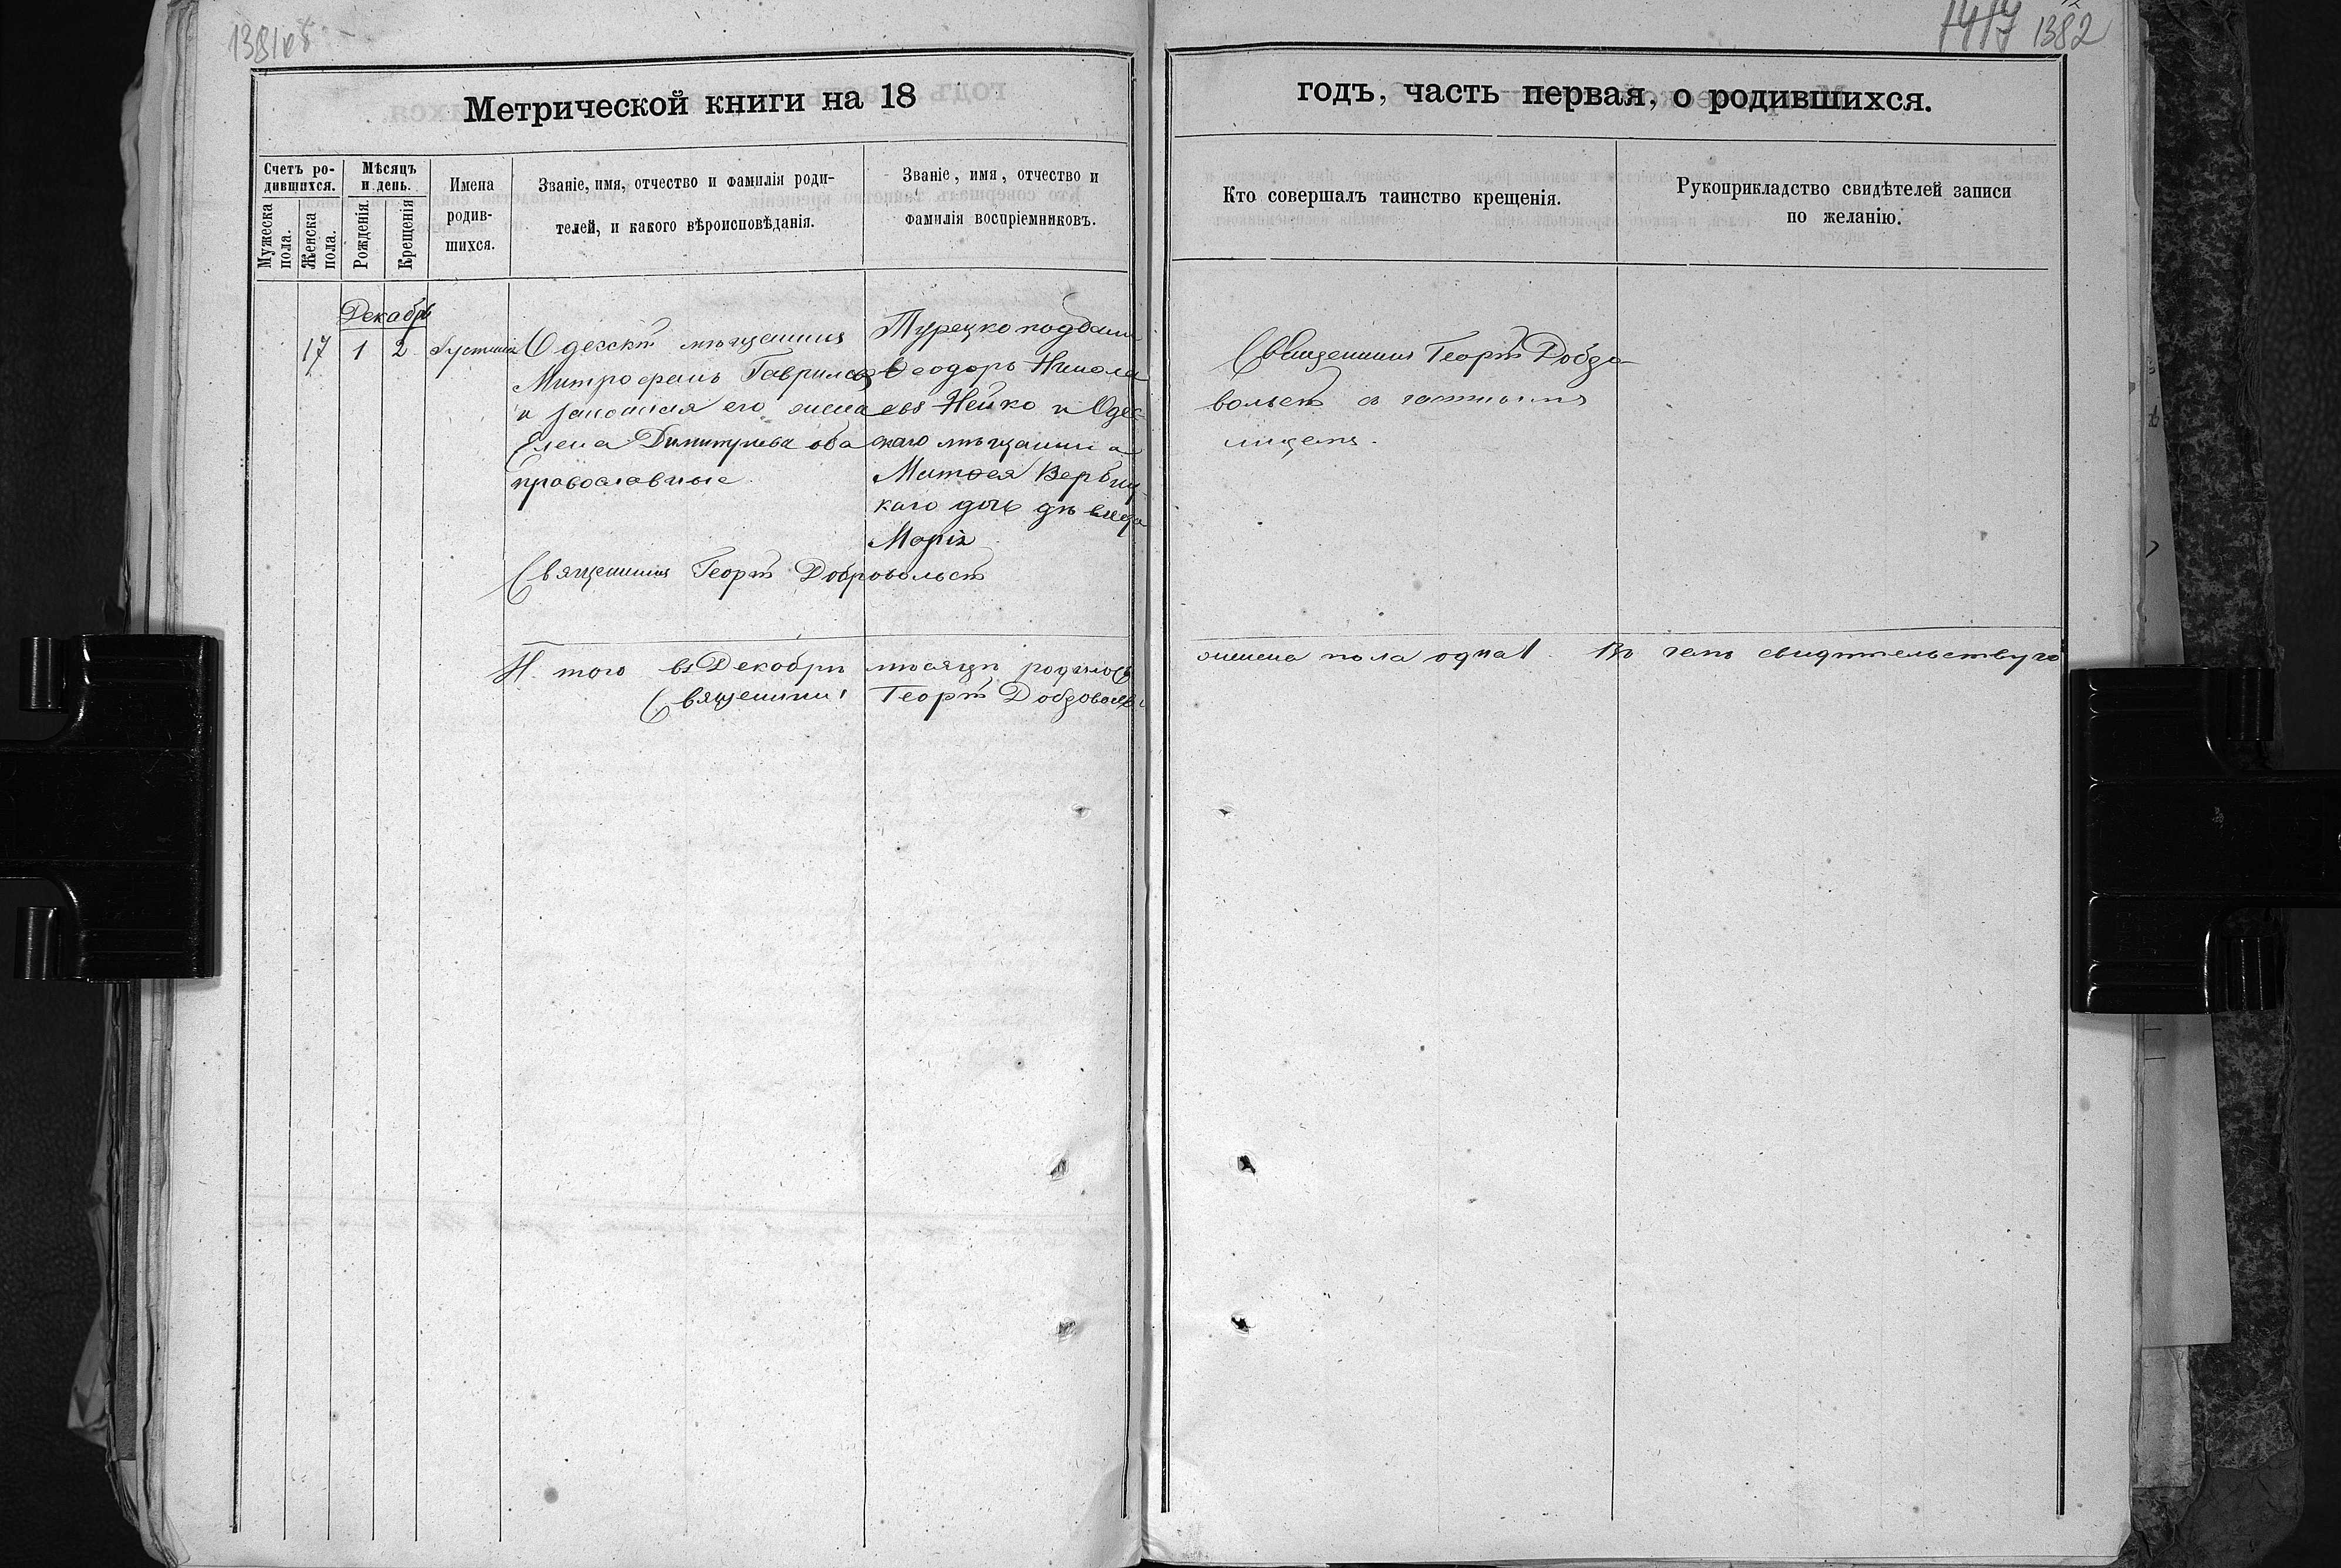 1382
Метрической книги на 18
годъ, часть первая, о родившихся.
Счетъ ро-
дившихся.
Мужеска
пола.
Женска
пола.
Мѣсяцъ
и день.
Рожденія.
Крещенія
Имена
родив-
шихся.
Званіе, имя, отчество и фамилія роди-
телей, и какого вѣроисповѣданія.
Званіе, имя, отчество и
фамилія воспріемниковъ.
Кто совершалъ таинство крещенія.
Рукоприкладство свидѣтелей записи
по желанію.
Декабрь
17 1 2
Одесскій мѣщанинъ
Митрофанъ Гавриловъ
и законная его жена
Елена Димитріева оба
православные
Турецкоподдан
Ѳеодоръ Никола
евъ Нейко и Одес-
скаго мѣщанина
Матѳея Вербиц-
каго дочь дѣвица
Марія
Священникъ Георгій Добро-
вольскій съ
Священникъ Георгій Добровольскій
Итого въ Декабрѣ мѣсяцѣ родилось
женска пола одна 1. Въ чемъ свидѣтельствую
Священникъ Георгій Добровольс